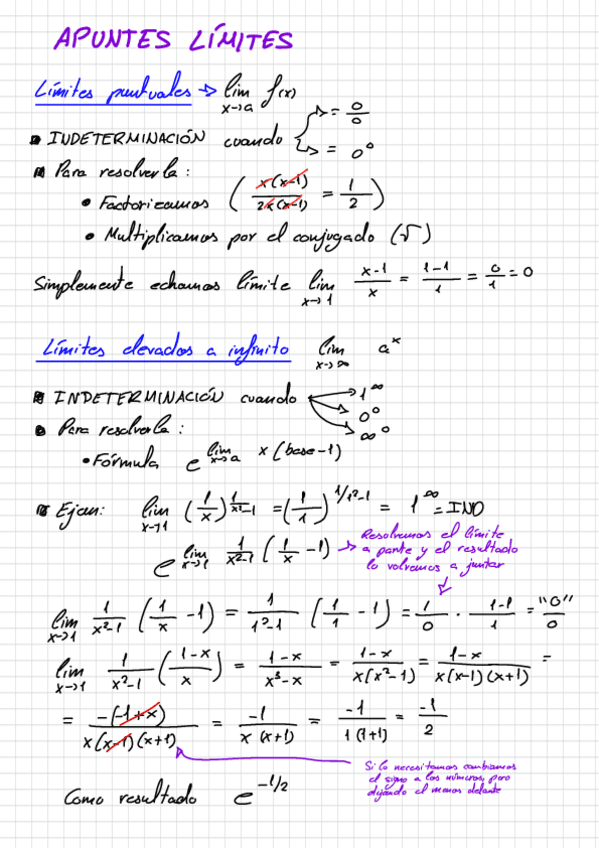 APUNTES LÍMITES
Límites puntuales → lim x→a f(x)
INDETERMINACIÓN cuando = 0/0
= 0⁰
Para resolverla:
• Factorizamos ( x(x-1) / 2x(x-1) = 1/2 )
• Multiplicamos por el conjugado (√)
Simplemente echamos límite lim x→1 (x-1)/x = (1-1)/1 = 0/1 = 0
Límites elevados a infinito lim x→∞ a^x
INDETERMINACIÓN cuando → 1^∞
0⁰
∞⁰
Para resolverla:
• Fórmula e^(lim x→a x(base-1))
Ejem: lim x→1 (1/x)^(1/(x²-1)) = (1/1)^(1/1²-1) = 1^∞ = IND
e^(lim x→1 1/(x²-1) (1/x - 1)) → Resolvemos el límite
a parte y el resultado
lo volvemos a juntar
lim x→1 1/(x²-1) (1/x - 1) = 1/(1²-1) (1/1 - 1) = 1/0 · (1-1)/1 = "0"/0
lim x→1 1/(x²-1) ((1-x)/x) = (1-x)/(x³-x) = (1-x)/(x(x²-1)) = (1-x)/(x(x-1)(x+1)) =
= -(-1+x)/(x(x-1)(x+1)) = -1/(x(x+1)) = -1/(1(1+1)) = -1/2
Si lo necesitamos cambiamos
el signo a los números, pero
dejando el menos delante
Como resultado e^(-1/2)